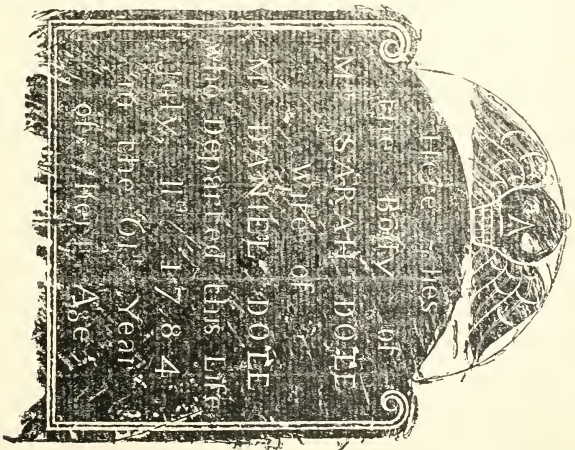 Here lies
The Body of
M SARAH DOTE
Wife of
M DANIEL DOTE
who Departed this Life
July 11 1784
the Year
of Her Age